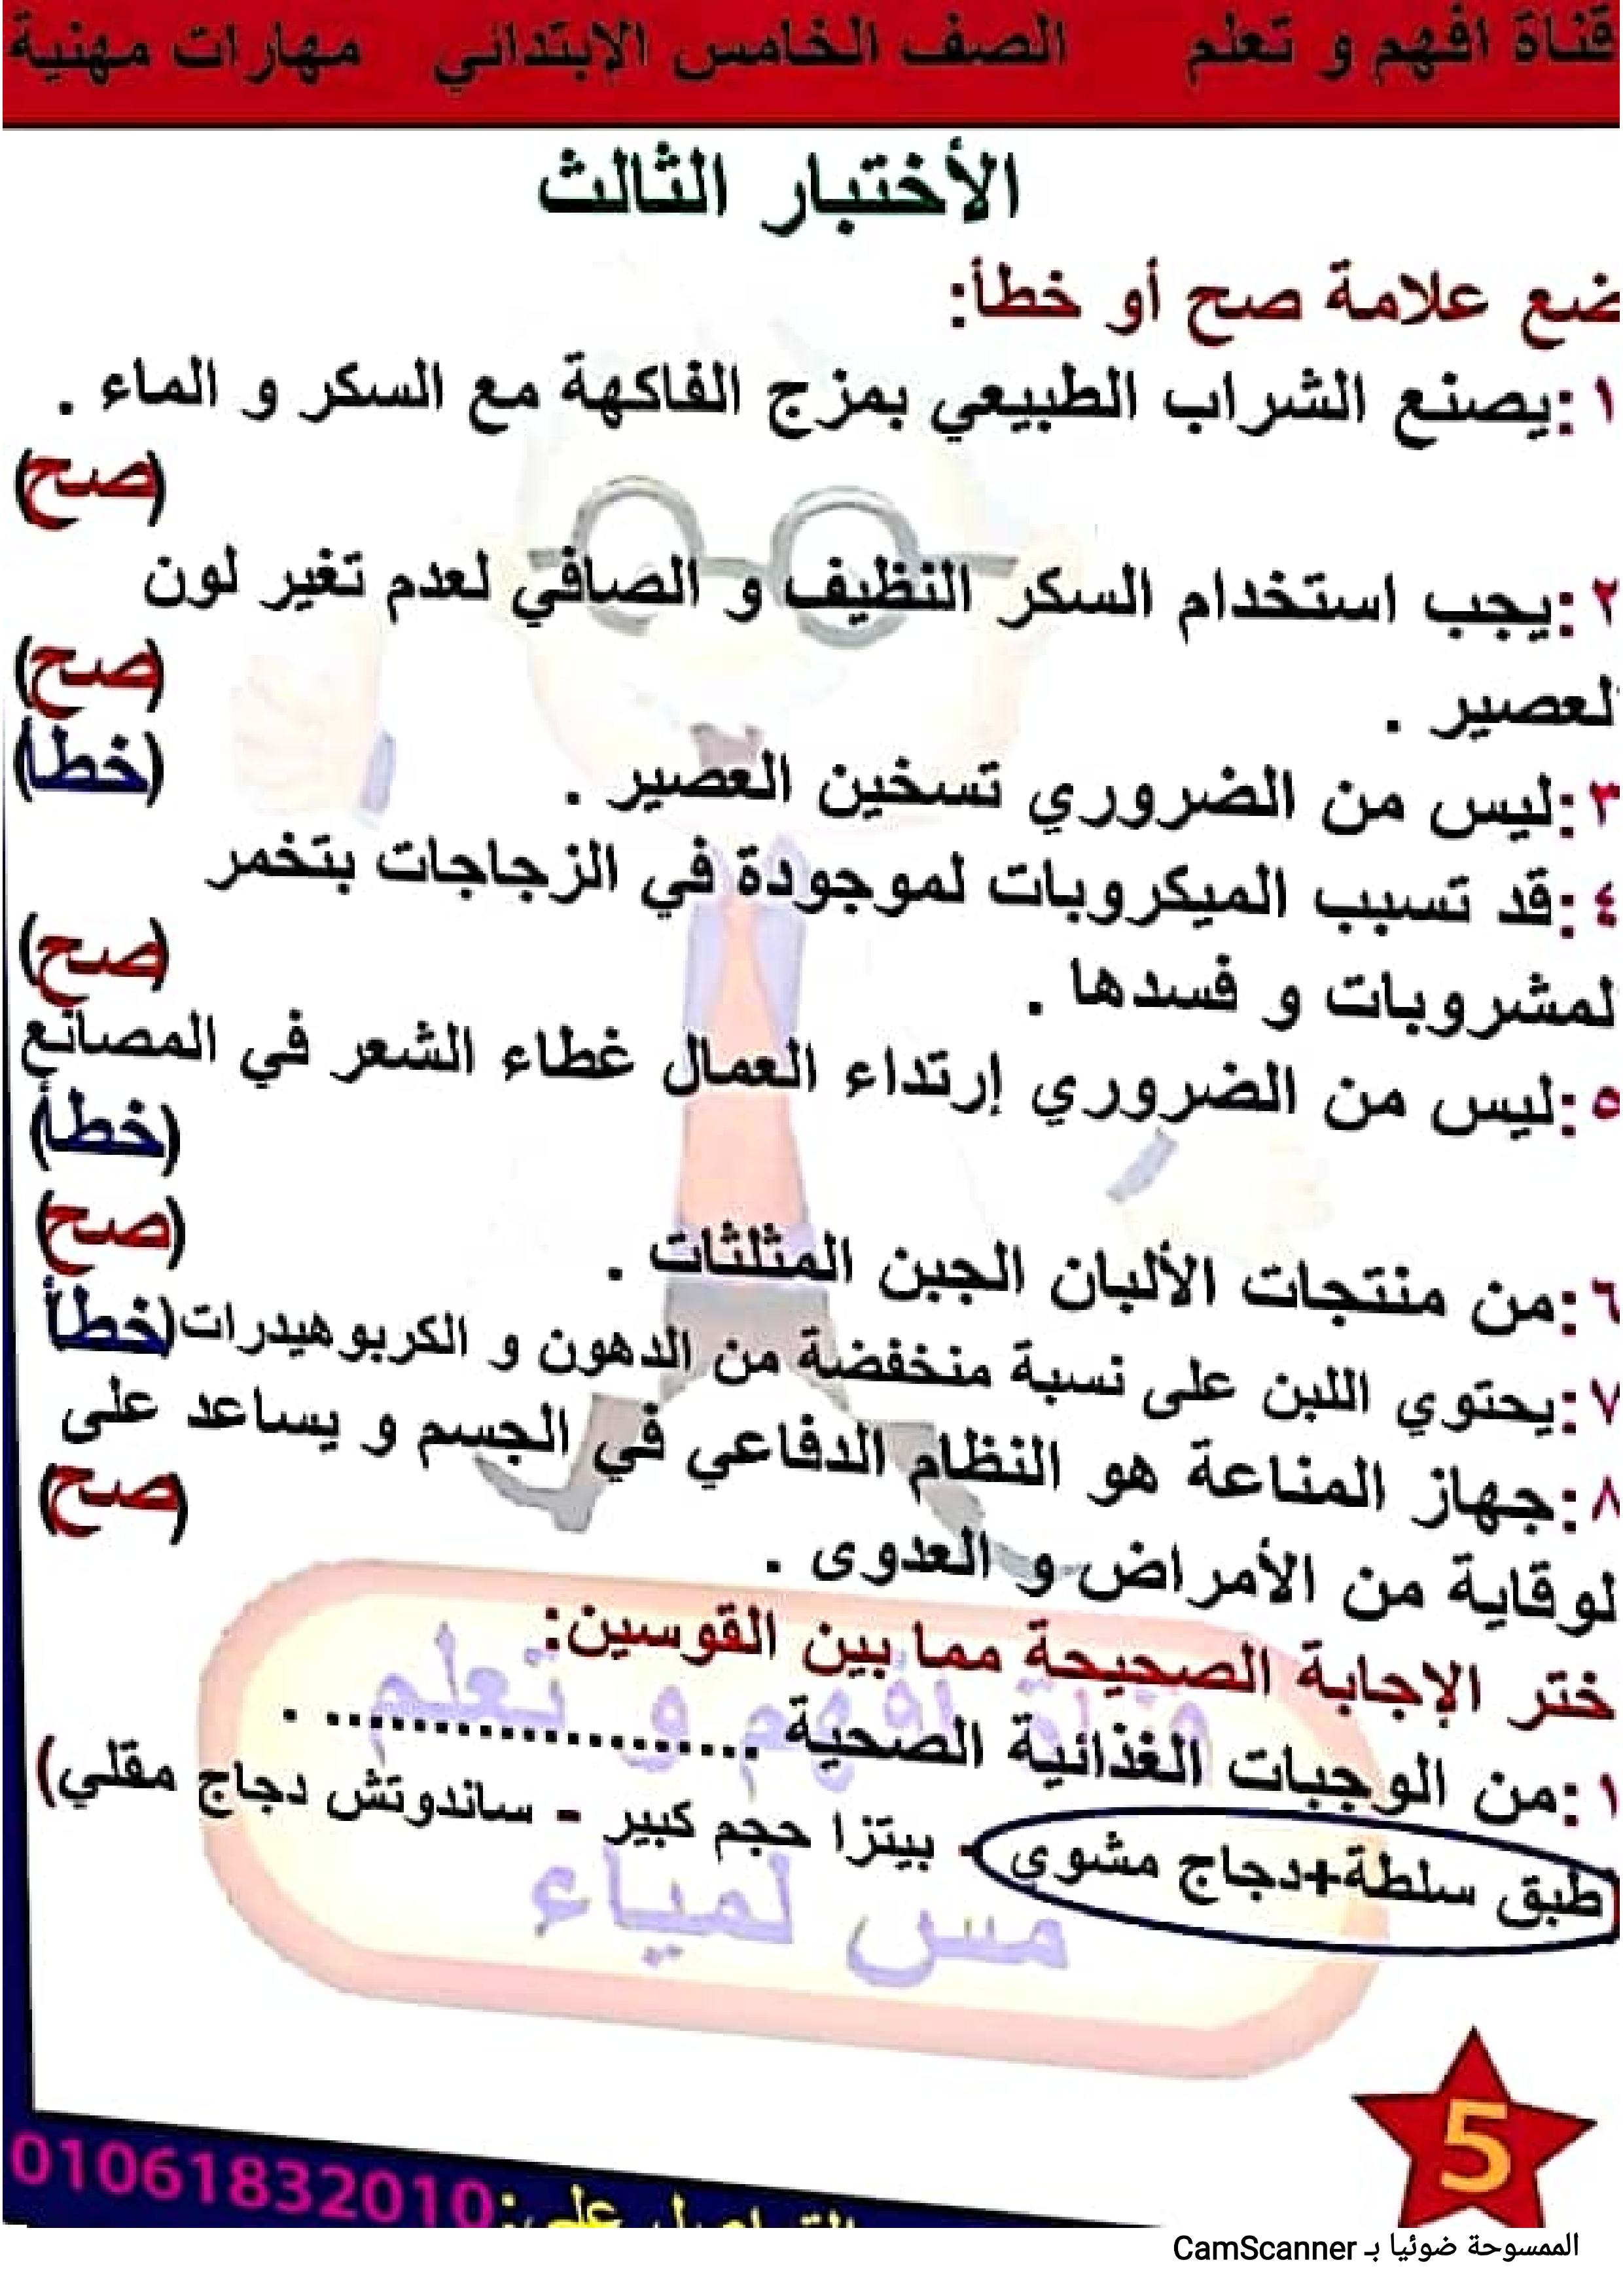 قناة افهم و تعلم الصف الخامس الإبتدائي مهارات مهنية
الأختبار الثالث
ضع علامة صح أو خطأ:
١:يصنع الشراب الطبيعي بمزج الفاكهة مع السكر و الماء .
(صح)
٢:يجب استخدام السكر النظيف و الصافي لعدم تغير لون
لعصير . (صح)
٣:ليس من الضروري تسخين العصير . (خطأ)
٤:قد تسبب الميكروبات لموجودة في الزجاجات بتخمر
لمشروبات و فسدها . (صح)
٥:ليس من الضروري إرتداء العمال غطاء الشعر في المصانع
(خطأ)
٦:من منتجات الألبان الجبن المثلثات . (صح)
٧:يحتوي اللبن على نسبة منخفضة من الدهون و الكربوهيدرات(خطأ
٨:جهاز المناعة هو النظام الدفاعي في الجسم و يساعد على
لوقاية من الأمراض و العدوى . (صح)
ختر الإجابة الصحيحة مما بين القوسين:
١:من الوجبات الغذائية الصحية .................... .
طبق سلطة+دجاج مشوي - بيتزا حجم كبير - ساندوتش دجاج مقلي)
قناة افهم و تعلم
مس لمياء
5
التواصل على:01061832010
الممسوحة ضوئيا بـ CamScanner